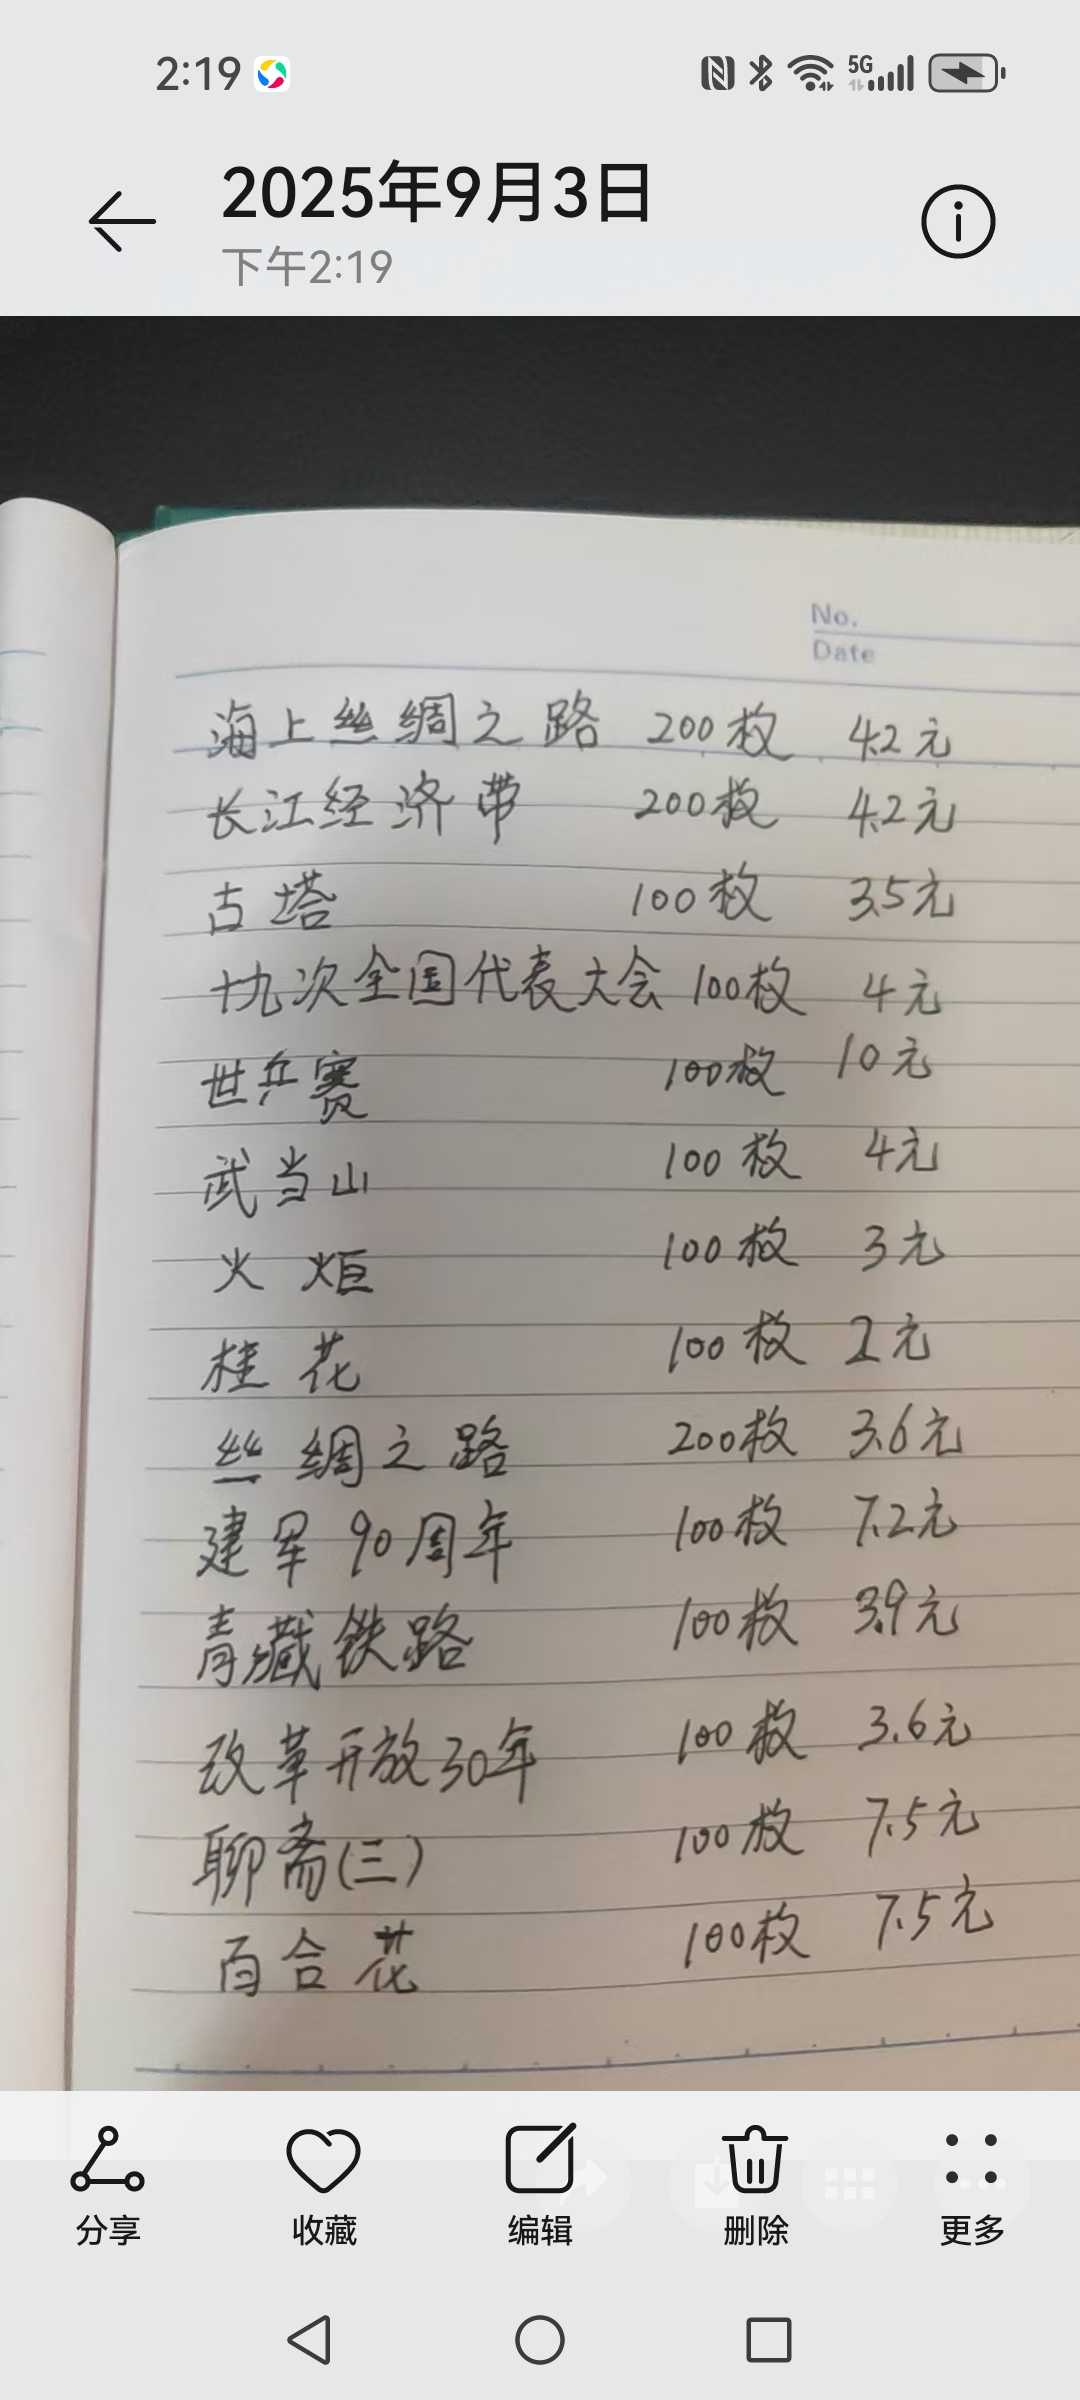 2:19 5G
2025年9月3日
下午2:19
No.
Date
海上丝绸之路 200枚 4.2元
长江经济带 200枚 4.2元
古塔 100枚 3.5元
十九次全国代表大会 100枚 4元
世乒赛 100枚 10元
武当山 100枚 4元
火炬 100枚 3元
桂花 100枚 2元
丝绸之路 200枚 3.6元
建军90周年 100枚 7.2元
青藏铁路 100枚 3.9元
改革开放30年 100枚 3.6元
聊斋(三) 100枚 7.5元
百合花 100枚 7.5元
分享 收藏 编辑 删除 更多